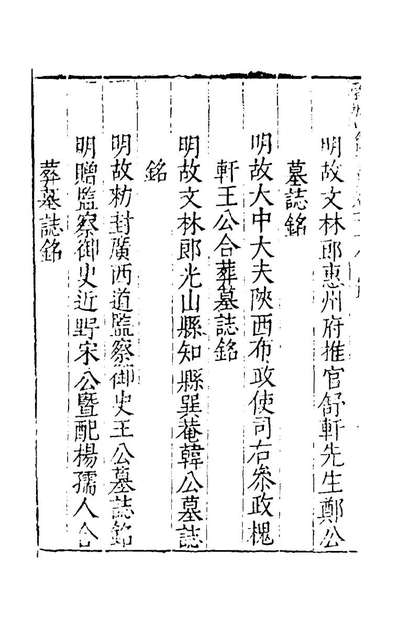 明故文林郎惠州府推官舒軒先生鄭公
墓誌銘
明故大中大夫陝西布政使司右叅政槐
軒王公合葬墓誌銘
明故文林郎光山縣知縣巽菴韓公墓誌
銘
明故勑封廣西道監察御史王公墓誌銘
明贈監察御史近野宋公暨配楊孺人合
葬墓誌銘